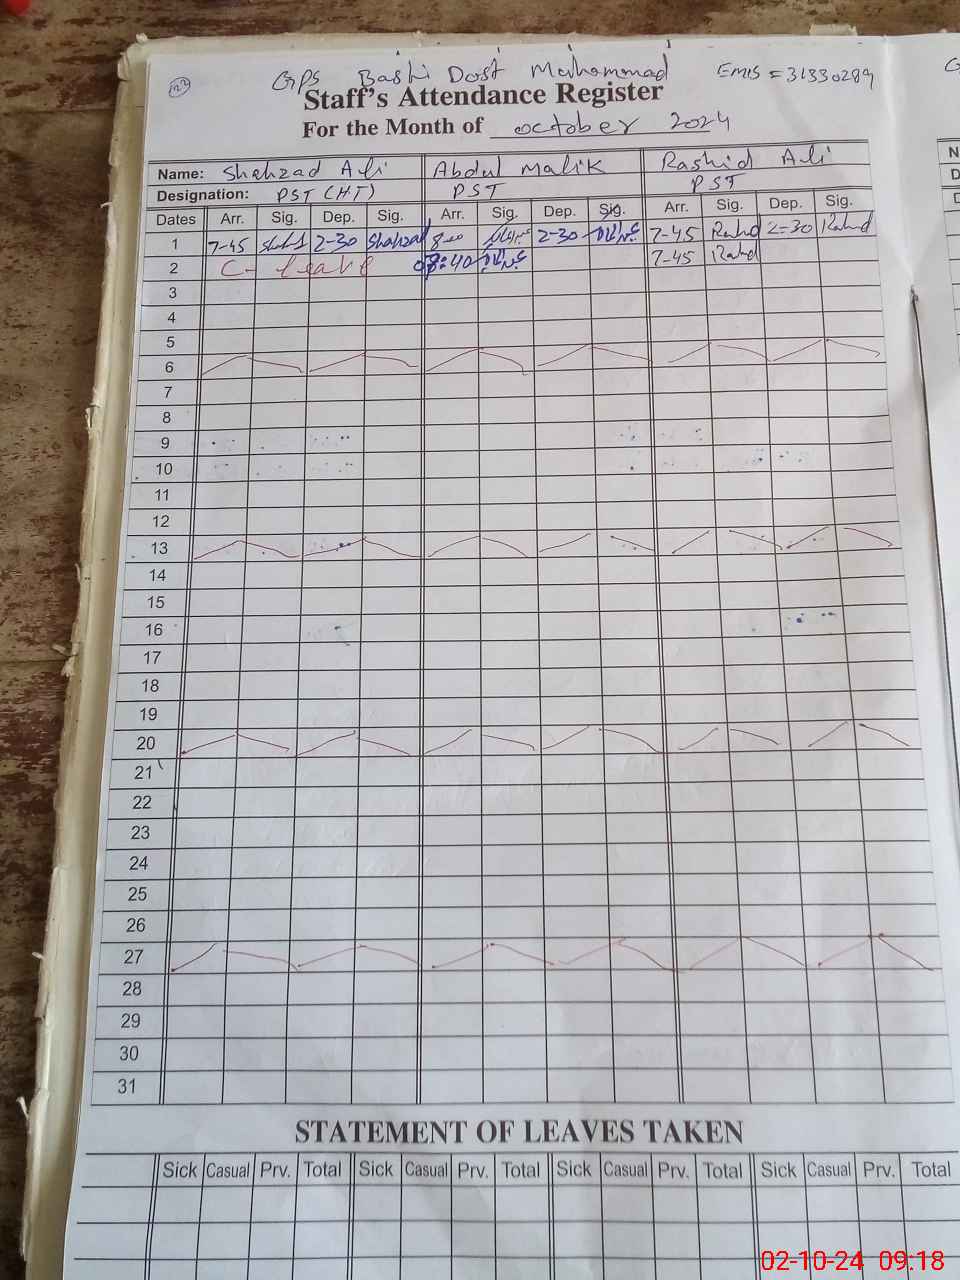 123
GPS Bashi Dost Muhammad EMIS = 31330289
Staff's Attendance Register
For the Month of october 2024
Name: Shahzad Ali Abdul Malik Rashid Ali
Designation: PST (HT) PST PST
Dates Arr. Sig. Dep. Sig. Arr. Sig. Dep. Sig. Arr. Sig. Dep. Sig.
1 7-45 2-30 Shahzad 8-00 2-30 7-45 2-30
2 C- leave 08:40 7-45
3
4
5
6
7
8
9
10
11
12
13
14
15
16
17
18
19
20
21
22
23
24
25
26
27
28
29
30
31
STATEMENT OF LEAVES TAKEN
Sick Casual Prv. Total Sick Casual Prv. Total Sick Casual Prv. Total Sick Casual Prv. Total
02-10-24 09:18